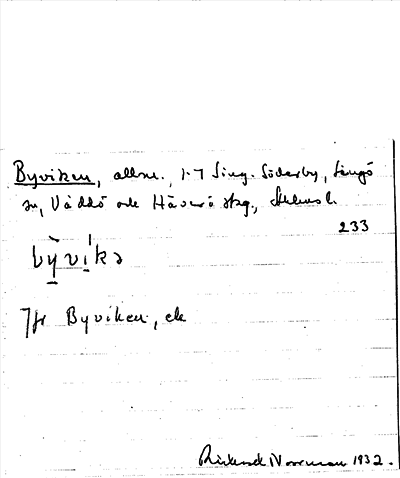 Byviken, allm., 1-7 Sing. Söderby, Singö
sn, Väddö och Häverö skg., Sthlms l.
233
bỳvi̱kə
Jfr Byviken, ek
Rickard Norrman 1932.